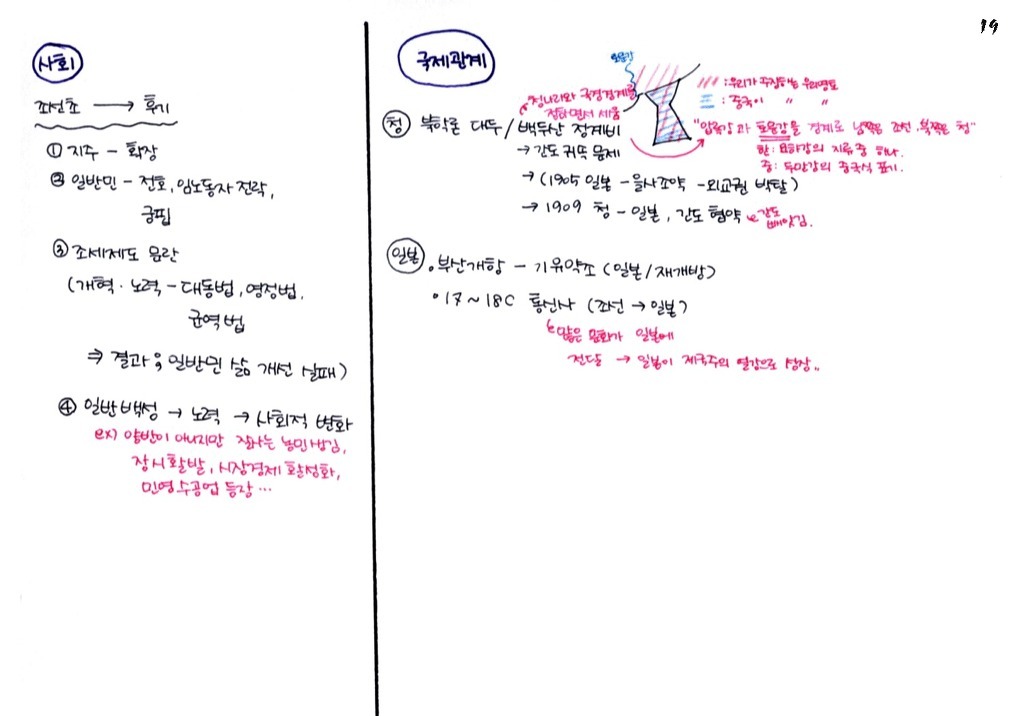 19
사회
조선초 → 후기
① 지주 - 확장
② 일반민 - 전호, 임노동자 전락,
궁핍
③ 조세제도 문란
(개혁·노력 - 대동법, 영정법,
균역법
⇒ 결과; 일반민 삶 개선 실패)
④ 일반백성 → 노력 → 사회적 변화
ex) 양반이 아니지만 잘사는 농민생김,
장시활발, 시장경제 활성화,
민영수공업 등장…
국제관계
토문강
///: 우리가 주장하는 우리영토
三: 중국이 〃 〃
청나라와 국경경계를
정하면서 세움
청 북학론 대두/백두산 정계비
"압록강과 토문강을 경계로 남쪽은 조선, 북쪽은 청"
한: 송화강의 지류 중 하나.
중: 두만강의 중국식 표기.
→ 간도 귀속 문제
→ (1905 일본 - 을사조약 - 외교권 박탈)
→ 1909 청 - 일본, 간도 협약
간도
빼앗김.
일본 ·부산개항 - 기유약조 (일본/재개방)
·17~18C 통신사 (조선 → 일본)
많은 문화가 일본에
전달 → 일본이 제국주의 열강으로 성장..